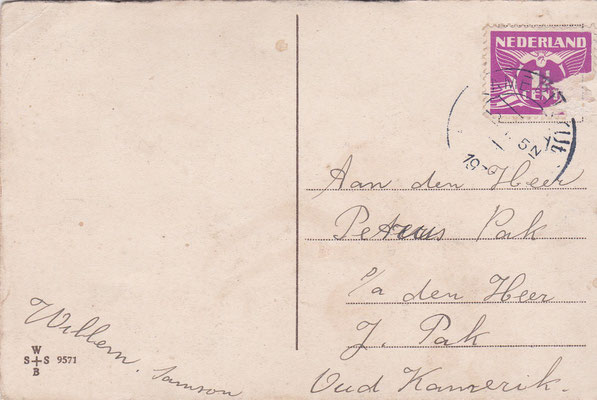 NEDERLAND
1½
CENT
Aan den Heer
Peterus Pak
p/a den Heer
J. Pak
Oud Kamerik.
Willem. Samson
W
S+S 9571
B